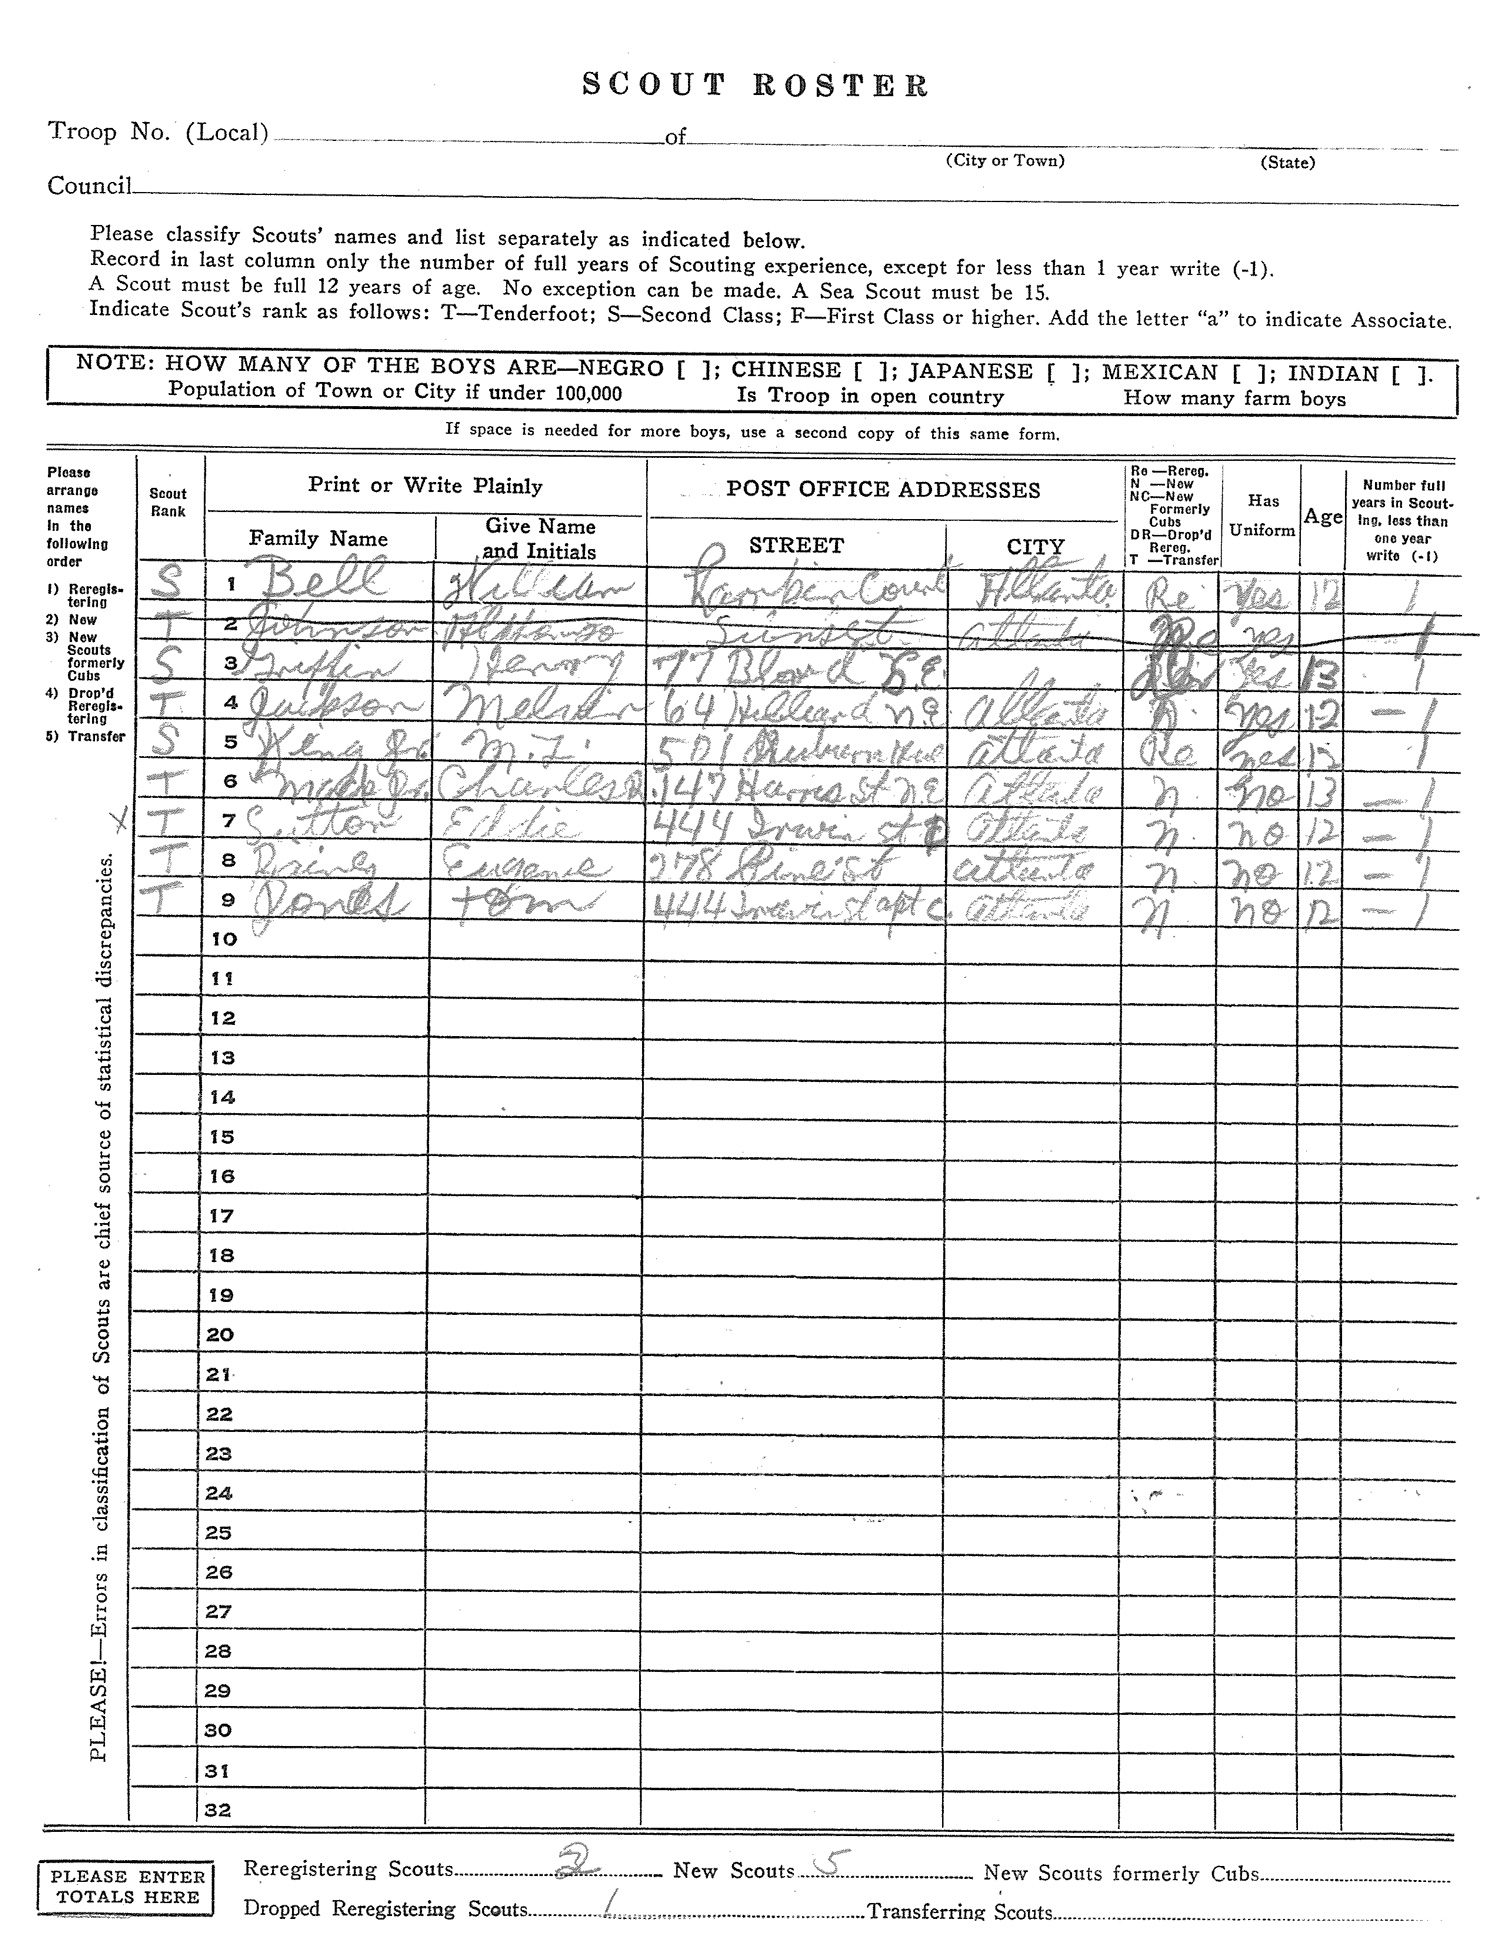 SCOUT ROSTER
Troop No. (Local) of
(City or Town) (State)
Council
Please classify Scouts' names and list separately as indicated below.
Record in last column only the number of full years of Scouting experience, except for less than 1 year write (-1).
A Scout must be full 12 years of age. No exception can be made. A Sea Scout must be 15.
Indicate Scout's rank as follows: T—Tenderfoot; S—Second Class; F—First Class or higher. Add the letter "a" to indicate Associate.
NOTE: HOW MANY OF THE BOYS ARE—NEGRO [ ]; CHINESE [ ]; JAPANESE [ ]; MEXICAN [ ]; INDIAN [ ].
Population of Town or City if under 100,000 Is Troop in open country How many farm boys
If space is needed for more boys, use a second copy of this same form.
Please
arrange
names
in the
following
order
1) Reregis-
tering
2) New
3) New
Scouts
formerly
Cubs
4) Drop'd
Reregis-
tering
5) Transfer
Scout
Rank
Print or Write Plainly
Family Name
Give Name
and Initials
POST OFFICE ADDRESSES
STREET CITY
Re —Rereg.
N —New
NC—New
Formerly
Cubs
DR—Drop'd
Rereg.
T —Transfer
Has
Uniform
Age
Number full
years in Scout-
ing, less than
one year
write (-1)
S 1 Bell William Court Atlanta Re Yes 12 1
T 2 Johnson Alphonso Sunset Atlanta Re yes 1
S 3 Griffin Henry 77 S.E. Yes 13 1
T 4 Jackson Melvin 64 Hilliard N.E. Atlanta Yes 12 — 1
S 5 King Jr. M. L. 501 Auburn Ave Atlanta Re yes 12 1
T 6 Mack Jr. Charles R. 147 Harris St N.E Atlanta N. No 13 — 1
X T 7 Sutton Eddie 444 Irwin St Atlanta N. No 12 — 1
T 8 Eugene 278 Pine St Atlanta N No 12 — 1
T 9 Jones Tom 444 Irwin St apt c. Atlanta N No 12 — 1
10
11
12
13
14
15
16
17
18
19
20
21
22
23
24
25
26
27
28
29
30
31
32
PLEASE!—Errors in classification of Scouts are chief source of statistical discrepancies.
PLEASE ENTER
TOTALS HERE
Reregistering Scouts 2 New Scouts 5 New Scouts formerly Cubs
Dropped Reregistering Scouts 1 Transferring Scouts